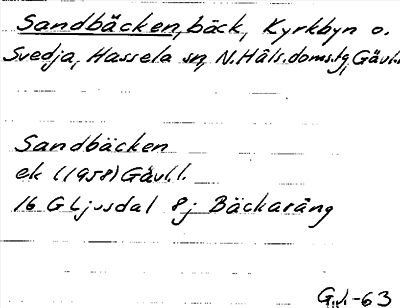 Sandbäcken, bäck, Kyrkbyn o.
Svedja, Hassela sn, N.Häls.doms.tg, Gävl.l.
Sandbäcken
ek (1958) Gävl.l.
16 G Ljusdal 8j Bäckaräng
G.J.-63